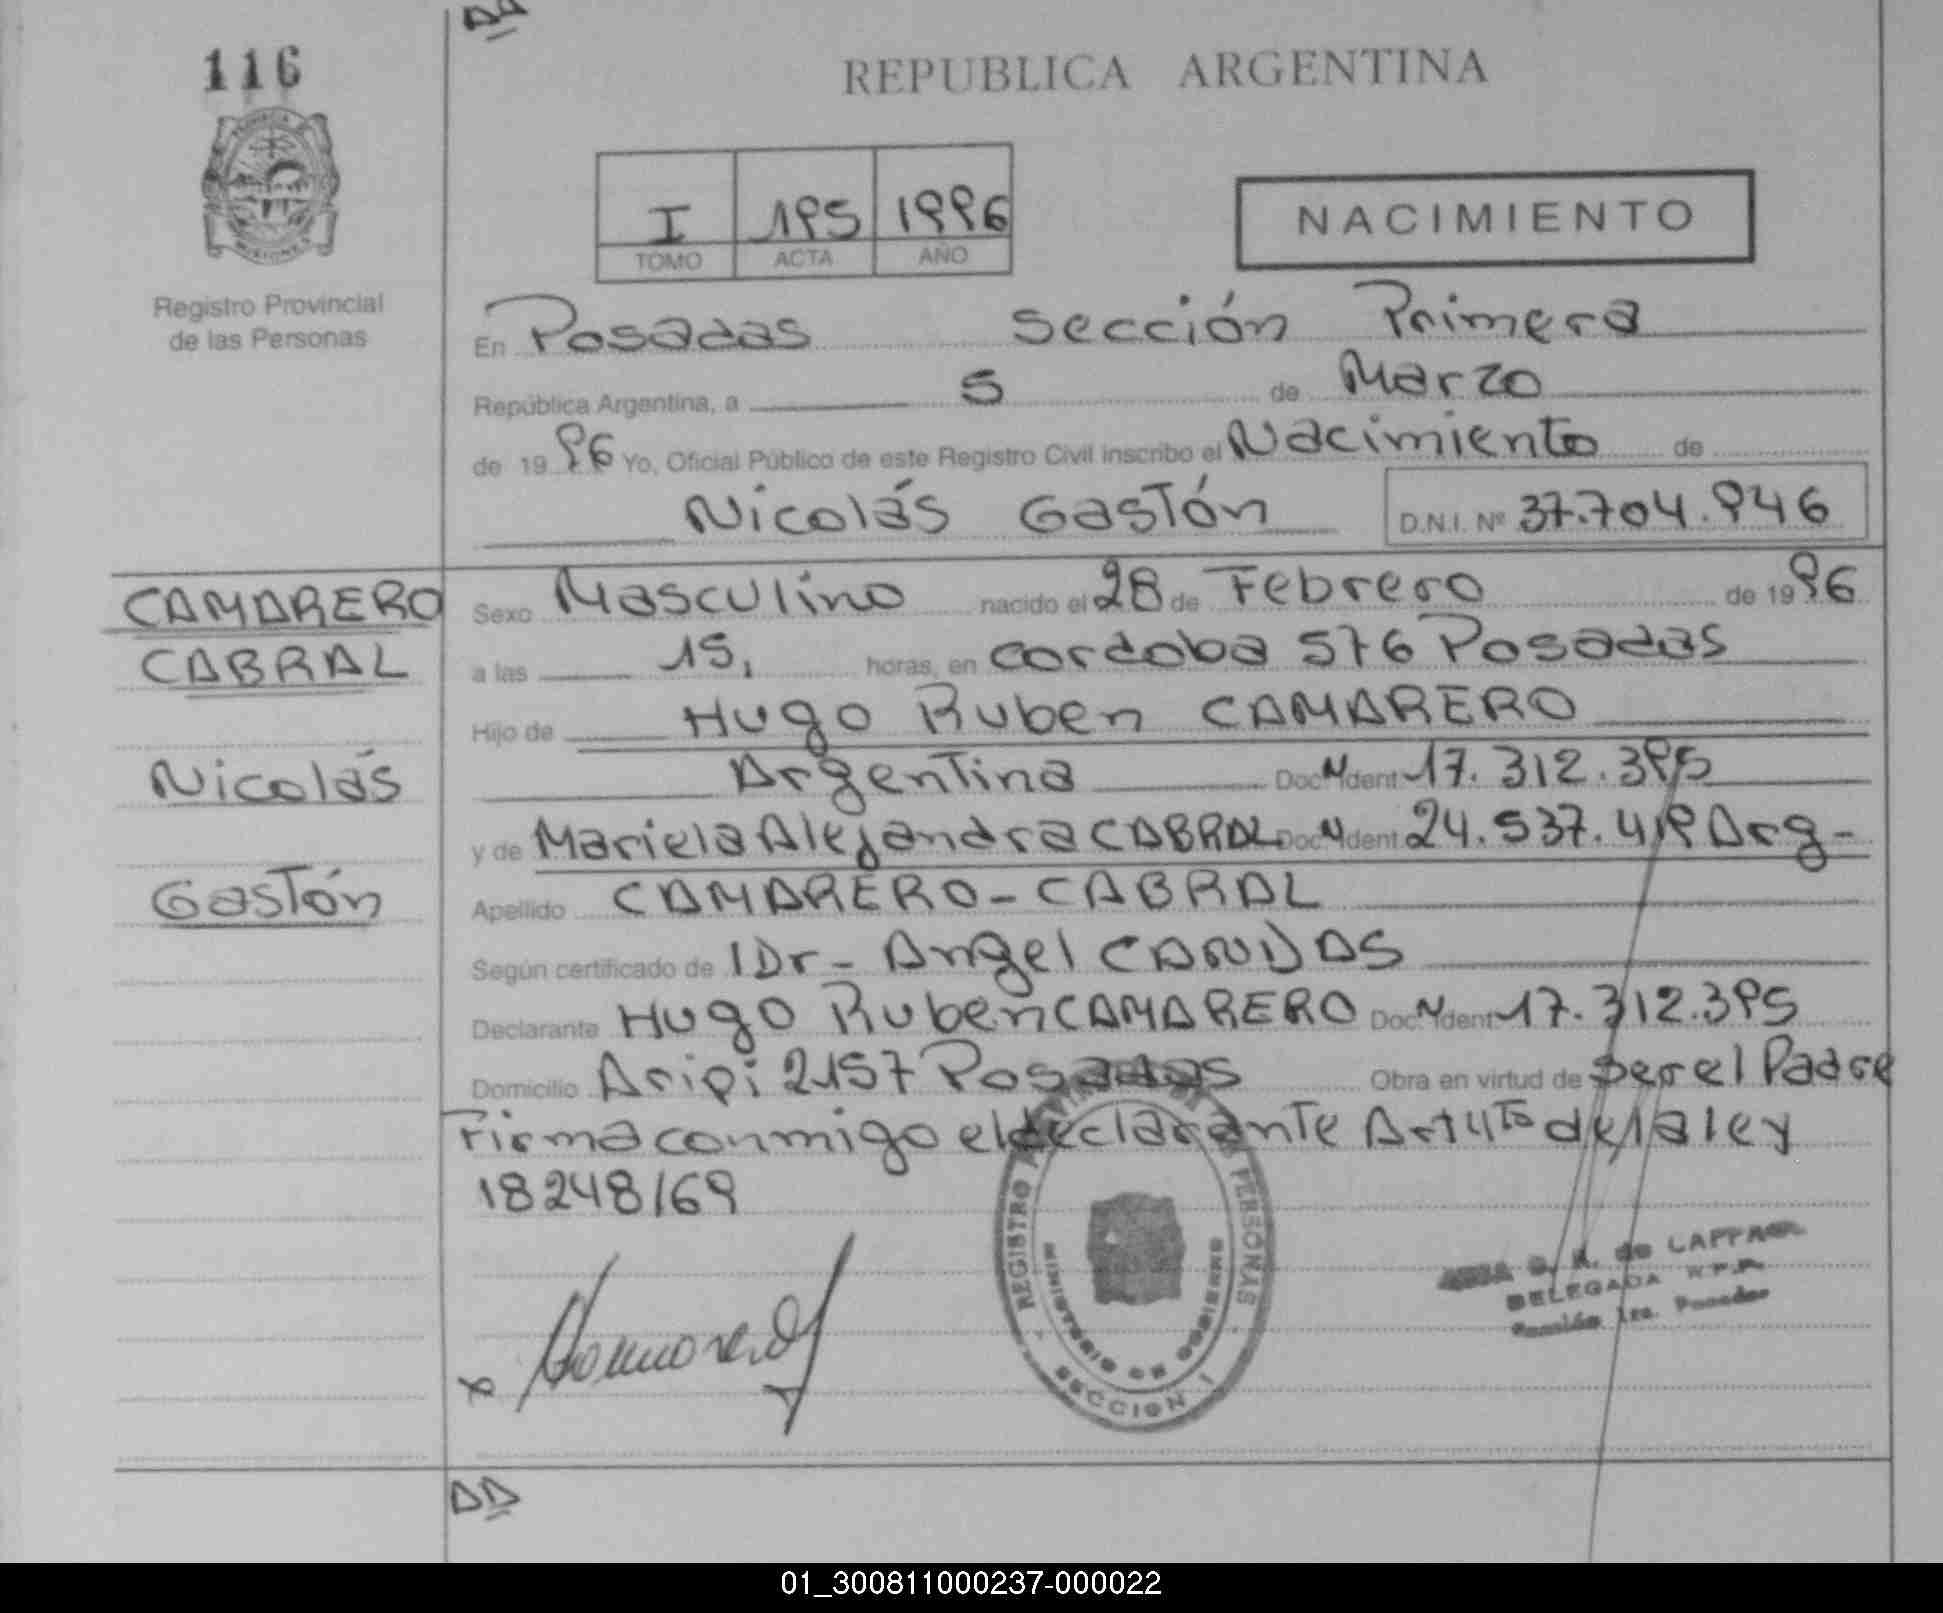 116
REPUBLICA ARGENTINA
I 195 1996
TOMO ACTA AÑO
NACIMIENTO
Registro Provincial
de las Personas
En Posadas Sección Primera
República Argentina, a 5 de Marzo
de 19 96 Yo, Oficial Público de este Registro Civil inscribo el Nacimiento de
Nicolás Gastón D.N.I. Nº 37.704.946
CAMARERO
CABRAL
Nicolás
Gastón
Sexo Masculino nacido el 28 de Febrero de 19 96
a las 15, horas, en cordoba 576 Posadas
Hijo de Hugo Ruben CAMARERO
Argentina Doc. Ident 17.312.395
y de Mariela Alejandra CABRAL Doc. Ident 24.537.419 Arg-
Apellido CAMARERO-CABRAL
Según certificado de Dr- Angel
Declarante Hugo Ruben CAMARERO Doc. Ident 17.312.395
Domicilio Aripi 2157 Posadas Obra en virtud de ser el Padre
Firma conmigo el declarante Art 4to de la ley
18248/69
REGISTRO DE LAS PERSONAS
MINISTERIO DE GOBIERNO
SECCION 1
de
DELEGADA R.P.P.
Sección 1ra. Posadas
01_300811000237-000022